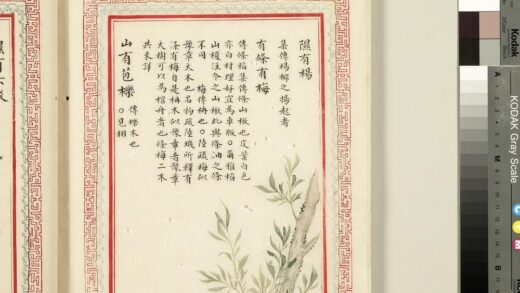 隰有楊
集傳楊柳之揚起者
有條有梅
傳條槄集傳條山楸也皮葉白色
亦白材理好宜為車版○爾雅槄
山榎注今之山楸此與條油之條
不同 梅傳柟也○陸疏梅似
豫章大木也名物疏陸璣所釋有
條有梅自是柟木似豫章者豫章
大樹可以為棺舟者也條梅二木
共未詳
山有苞櫟 傳櫟木也
○見栩
隰有六駮
Kodak
KODAK Gray Scale